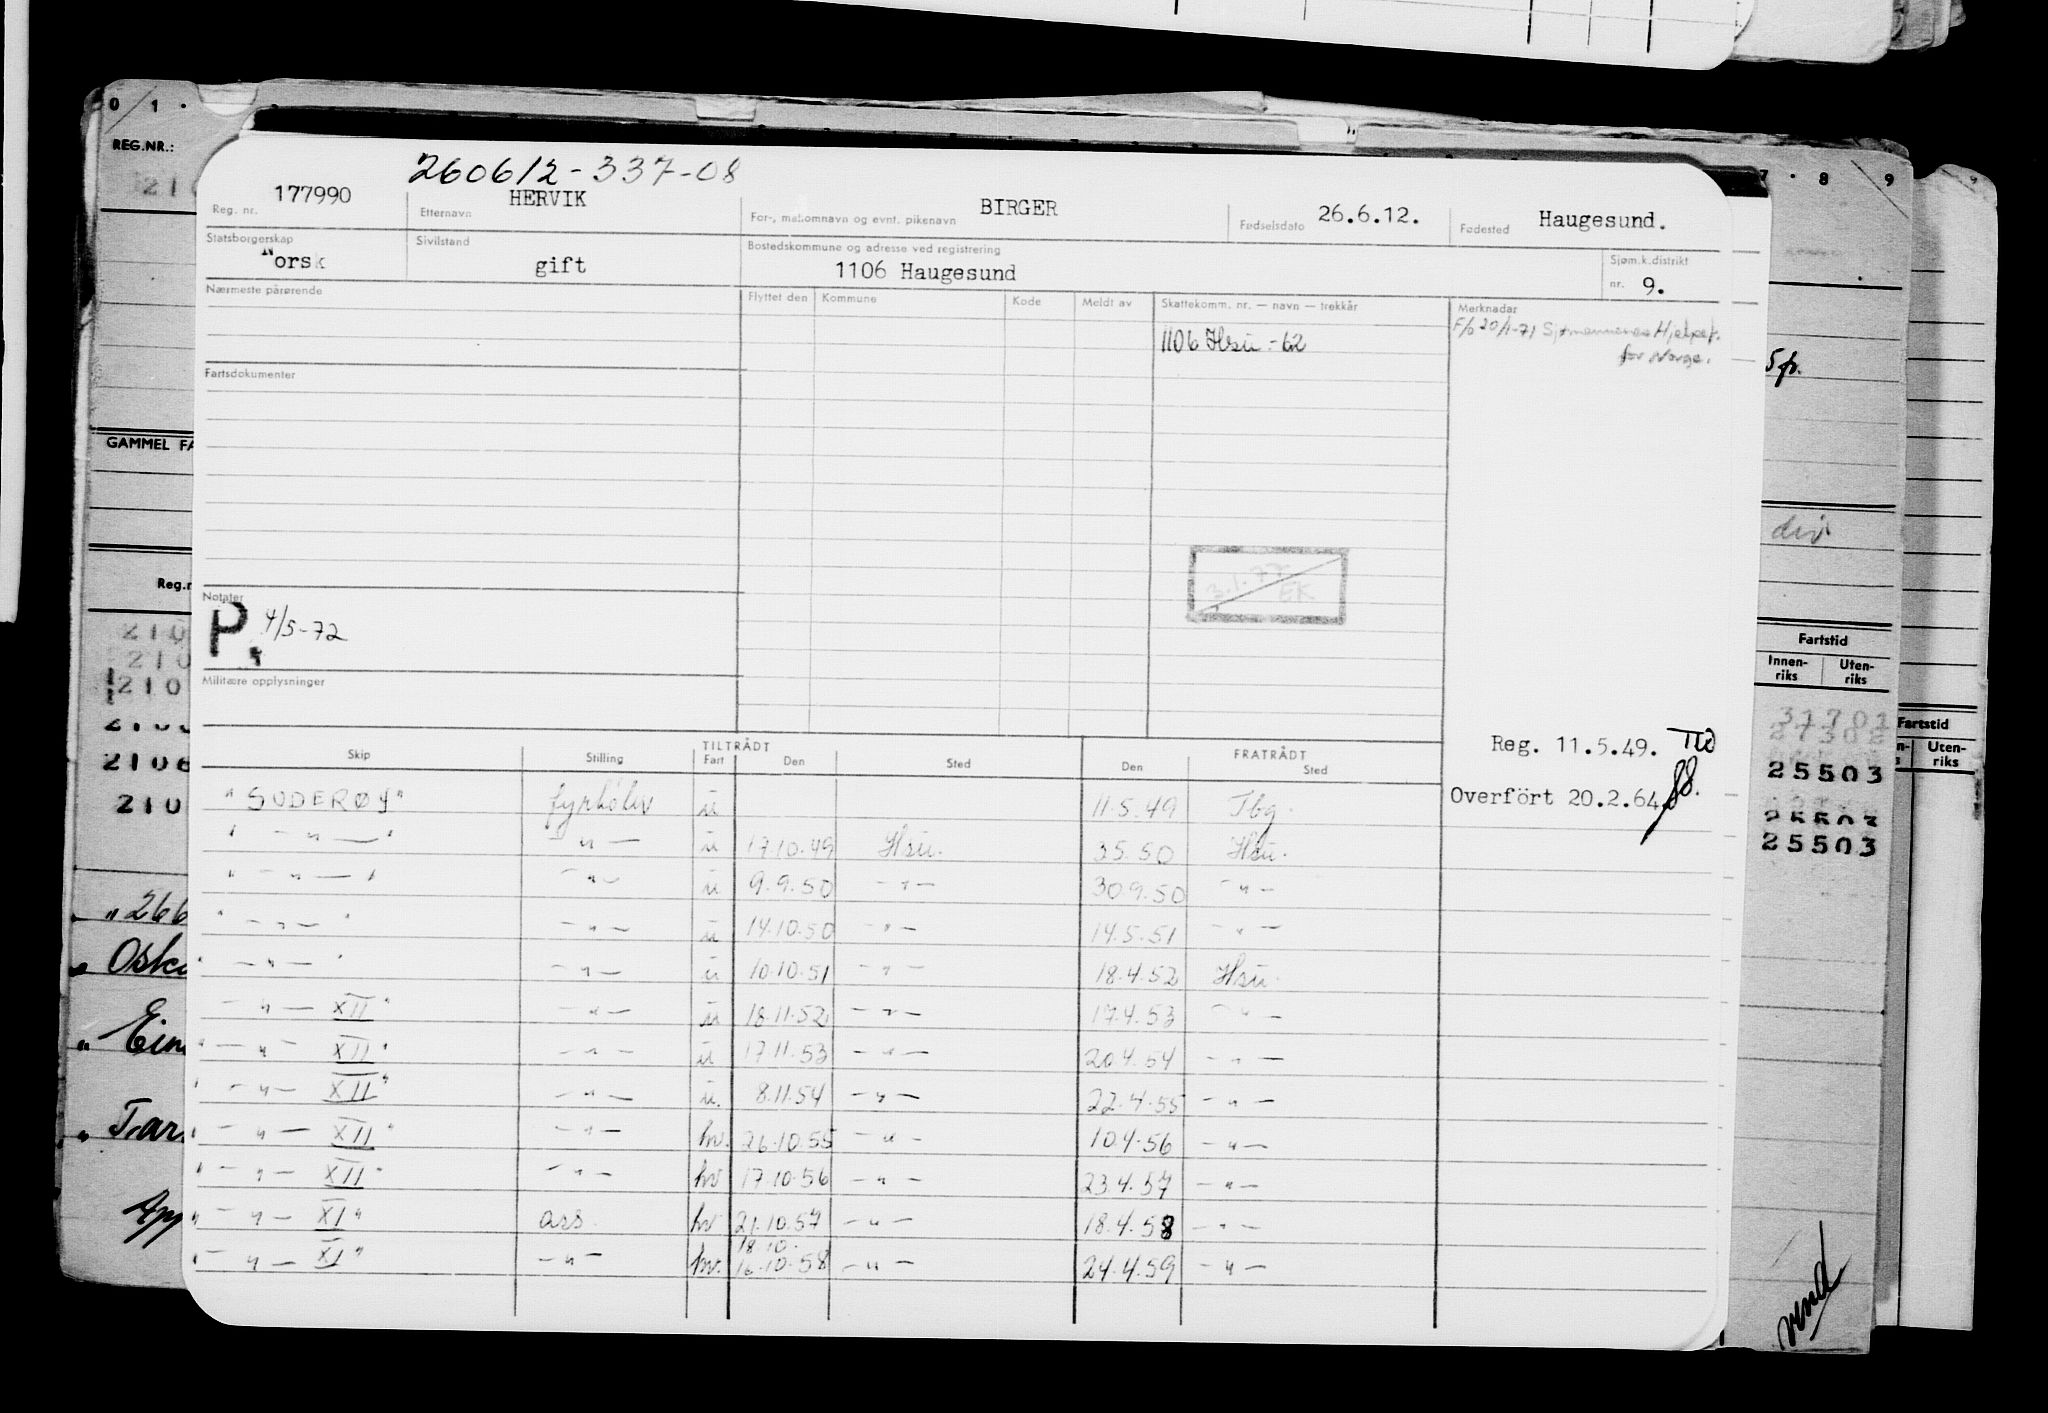 0 1 .
REG.NR.:
7 . 8 9
260612-337-08
Reg. nr. 177990 Etternavn HERVIK For-, mellomnavn og evnt. pikenavn BIRGER Fødselsdato 26.6.12. Fødested Haugesund.
Statsborgerskap Norsk Sivilstand gift Bostedskommune og adresse ved registrering 1106 Haugesund Sjøm.k.distrikt nr. 9.
Nærmeste pårørende Flyttet den Kommune Kode Meldt av Skattekomm. nr. — navn — trekkår Merknadar
1106 Hsu -62 F/s 20/1-71 Sjømannenes Hjelpef.
for Norge.
5 fr.
Fartsdokumenter
GAMMEL FA
div
3.1.77 EK
Reg.n
Notater
P. 4/5-72
Militære opplysninger
210
210
210
2106
210
Fartstid
Innen-riks Uten-riks
31701
27302
25503
25503
25503
Fartstid
Uten-riks
Reg. 11.5.49.
Overført 20.2.64
TILTRÅDT FRATRÅDT
Skip Stilling Fart Den Sted Den Sted
"SUDERØY" fyrbøter u 11.5.49 Tbg.
" — " — " — " — u 17.10.49 Hsu. 3.5.50 Hsu.
" — " — " — " — u 9.9.50 — " — 30.9.50 — " —
" — " — " — " — u 14.10.50 — " — 14.5.51 — " —
" — " — " — " — u 10.10.51 — " — 18.4.52 Hsu.
— " — XII" — " — u 18.11.52 — " — 17.4.53 — " —
" — " — XII" — " — u 17.11.53 — " — 20.4.54 — " —
" — " — XII" — " — u. 8.11.54 — " — 22.4.55 — " —
" — " — XII" — " — hv. 26.10.55 — " — 10.4.56 — " —
" — " — XII" — " — hv 17.10.56 — " — 23.4.57 — " —
" — " — XI" ass. hv 21.10.57 — " — 18.4.58 — " —
18.10.
" — " — XI" — " — hv. 16.10.58 — " — 24.4.59 — " —
"266
Oska
" Ein
" Tar
App
vend